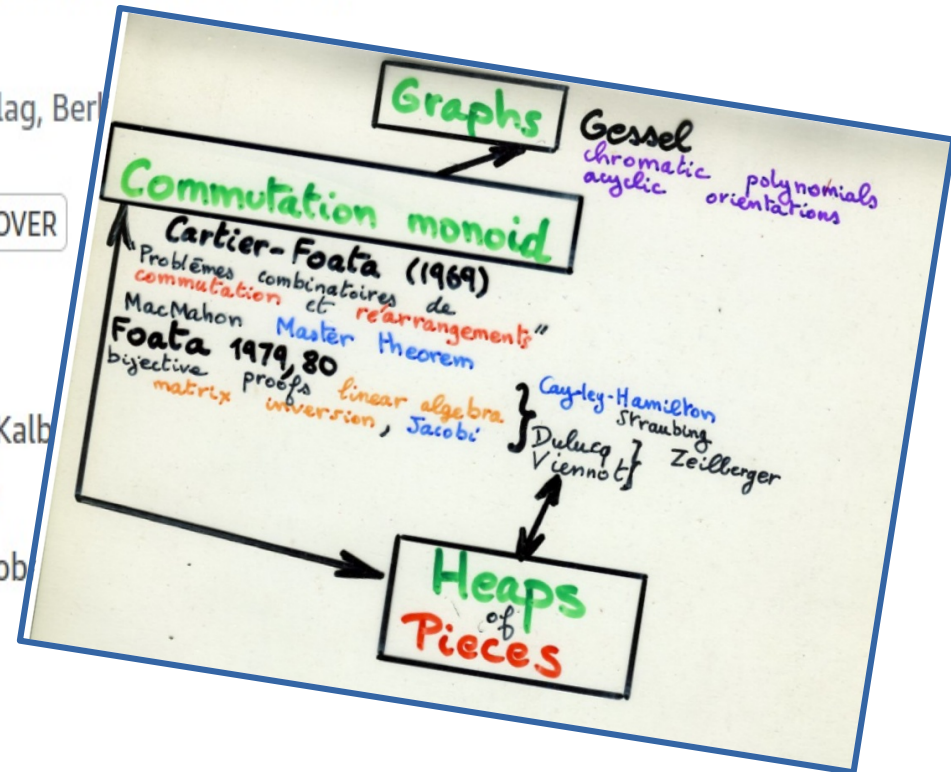 lag, Berl
OVER
Kalb
ob
Graphs
Gessel
chromatic polynomials
acyclic orientations
Commutation monoid
Cartier-Foata (1969)
"Problèmes combinatoires de
commutation et réarrangements"
MacMahon Master theorem
Foata 1979, 80
bijective proofs linear algebra
matrix inversion, Jacobi
Cayley-Hamilton
Straubing
Dulucq
Viennot
Zeilberger
Heaps
of
Pieces